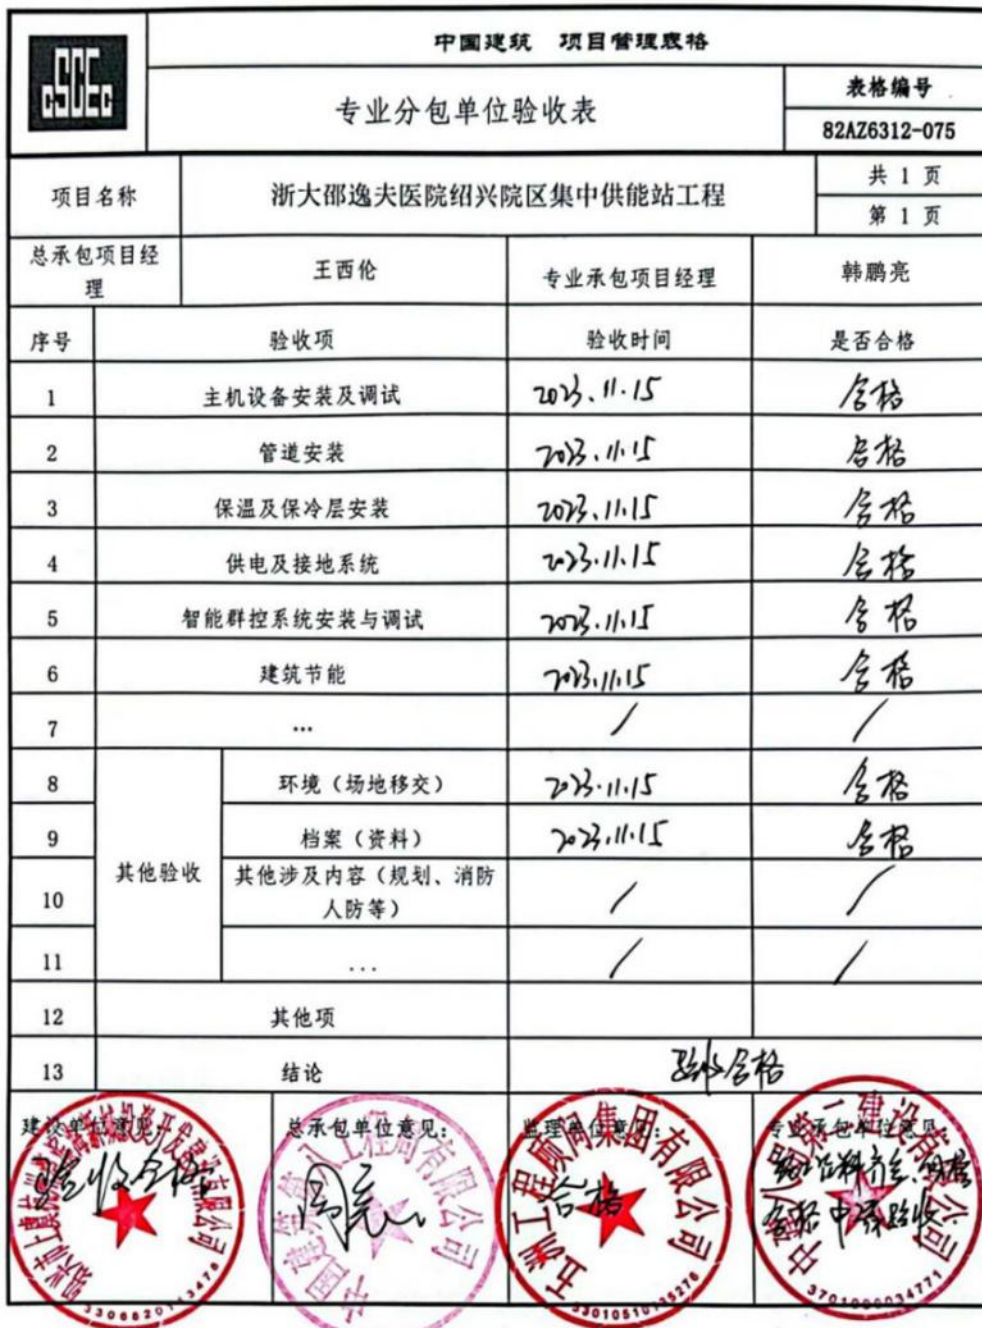 CSCEC
中国建筑 项目管理表格
专业分包单位验收表
表格编号
82AZ6312-075
项目名称
浙大邵逸夫医院绍兴院区集中供能站工程
共 1 页
第 1 页
总承包项目经理
王西伦
专业承包项目经理
韩鹏亮
序号 验收项 验收时间 是否合格
1 主机设备安装及调试 2023.11.15 合格
2 管道安装 2023.11.15 合格
3 保温及保冷层安装 2023.11.15 合格
4 供电及接地系统 2023.11.15 合格
5 智能群控系统安装与调试 2023.11.15 合格
6 建筑节能 2023.11.15 合格
7 ... / /
其他验收
8 环境（场地移交） 2023.11.15 合格
9 档案（资料） 2023.11.15 合格
10 其他涉及内容（规划、消防人防等） / /
11 ... / /
12 其他项
13 结论 验收合格
建设单位意见：
验收合格
总承包单位意见：
同意
监理单位意见：
合格
五洲工程顾问集团有限公司
专业承包单位意见
合格 申请验收
3701000034771